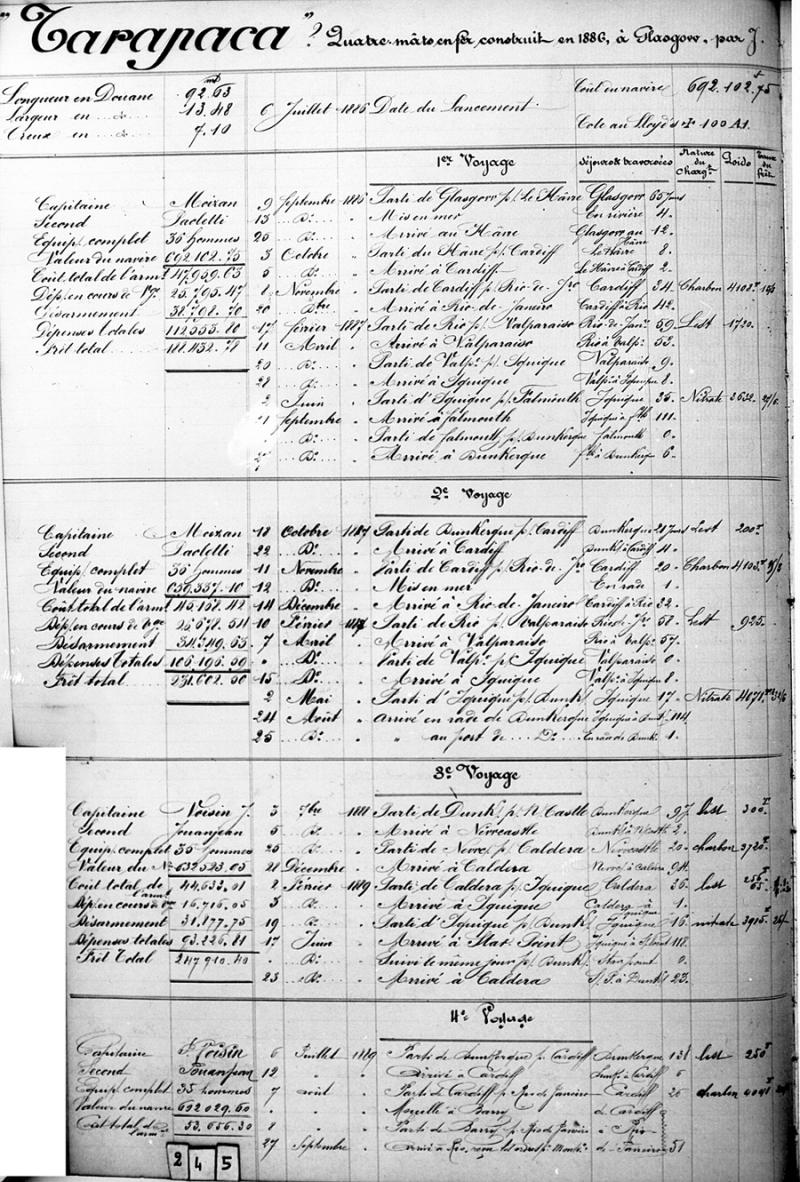 "Tarapaca" Quatre-mâts en fer, construit en 1886, à Glasgow, par J.
Longueur en Douane 92.63 Coût du navire 692.102.75
Largeur en do 13.48 6 Juillet 1886 Date du Lancement. Cote au Lloyd's 100 A1
Creux en do 7.10
1er Voyage Séjours & traversées Nature du Chargt Poids Taux du frêt
Capitaine Moizan 9 Septembre 1886 Parti de Glasgow p/ Le Hâvre Glasgow 65 Jours
Second Paoletti 13 Do Mis en mer En rivière 4
Equip. complet 35 hommes 25 Do Arrivé au Hâvre Glasgow au Hâvre 12
Valeur du navire 692.102.75 3 Octobre Parti du Hâvre p/ Cardiff Le Hâvre 8
Coût total de l'armt 47.959.63 5 Do Arrivé à Cardiff Le Hâvre à Cardiff 2
Dép. en cours de Vge 25.795.47 8 Novembre Parti de Cardiff p/ Rio-de-Jro Cardiff 34 Charbon
Désarmement 38.798.70 20 Xbre Arrivé à Rio-de-Janeiro Cardiff à Rio 42
Dépenses totales 112.553.80 17 février 1887 Parti de Rio p/ Valparaiso Rio-de-Jano 59 Lest 1720
Frêt total 188.432.78 11 Avril Arrivé à Valparaiso Rio à Valpo 53
20 Do Parti de Valpo p/ Iquique Valparaiso 9
28 Do Arrivé à Iquique Valpo à Iquique 8
2 Juin Parti d'Iquique p/ Falmouth Iquique 35 Nitrate 3632
21 Septembre Arrivé à Falmouth Iquique à Flth 111
Do Parti de Falmouth p/ Dunkerque Falmouth 0
27 Do Arrivé à Dunkerque Flth à Dunkerque 6
2e Voyage
Capitaine Moizan 18 Octobre 1887 Parti de Dunkerque p/ Cardiff Dunkerque 21 Jours Lest 200
Second Paoletti 22 Do Arrivé à Cardiff Dunk. à Cardiff 4
Equip. complet 35 hommes 11 Novembre Parti de Cardiff p/ Rio-de-Jro Cardiff 20 Charbon
Valeur du navire 659.357.10 12 Do Mis en mer En rade 1
Coût total de l'armt 45.168.42 14 Décembre Arrivé à Rio-de-Janeiro Cardiff à Rio 32
Dép. en cours de Vge 10 Février Parti de Rio p/ Valparaiso 58 Lest 925
Désarmement 34.349.63 7 Avril Arrivé à Valparaiso Rio à Valpo 57
Dépenses totales 106.196.59 Do Parti de Valpo p/ Iquique Valparaiso 0
Frêt total 15 Do Arrivé à Iquique Valpo à Iquique 8
2 Mai Parti d'Iquique p/ Dunk. Iquique 17 Nitrate 4071
24 Août Arrivé en rade de Dunkerque Iquique à Dunk. 114
25 Do " au port de Do En rade de Dunk. 1
3e Voyage
Capitaine Voisin J. 3 7bre 1888 Parti de Dunk. p/ N. Castle Dunkerque 9 J lest 300
Second Jouanjean 5 Do Arrivé à Newcastle Dunk. à N. Castle 2
Equip. complet 35 hommes 25 Do Parti de Newc. p/ Caldera Newcastle 20 charbon 3720
Valeur du Nre 632.523.05 28 Décembre Arrivé à Caldera Newc. à Caldera 94
Coût total de l'armt 44.633.01 2 Février 1889 Parti de Caldera p/ Iquique Caldera 36 lest
Dép. en cours de Vge 16.716.05 3 Do Arrivé à Iquique Caldera à Iquique 1
Désarmement 31.877.75 19 Do Parti d'Iquique p/ Dunk. Iquique 16 nitrate 3915
Dépenses totales 93.226.81 17 Juin Arrivé à Star Point Iquique à St Point 118
Frêt Total 247.910.40 Do Suivi le même jour p/ Dunk. Star Point 0
23 Do Arrivé à Caldera St. P. à Dunk. 23
4e Voyage
Capitaine J. Voisin 6 Juillet 1889 Parti de Dunkerque p. Cardiff Dunkerque 13 J lest 250
Second Jouanjean 12 Arrivé à Cardiff Dunk. à Cardiff 6
Equip. complet 35 hommes 7 août Parti de Cardiff p/ Rio de Janeiro Cardiff 26 charbon
Valeur du navire 602.029.60 Mouillé à Barry de Cardiff
Coût total de l'armt 53.656.30 8 Parti de Barry p/ Rio de Janeiro à Rio
27 Septembre Arrivé à Rio, reçu les ordres p. Monto. de-Janeiro 51
245